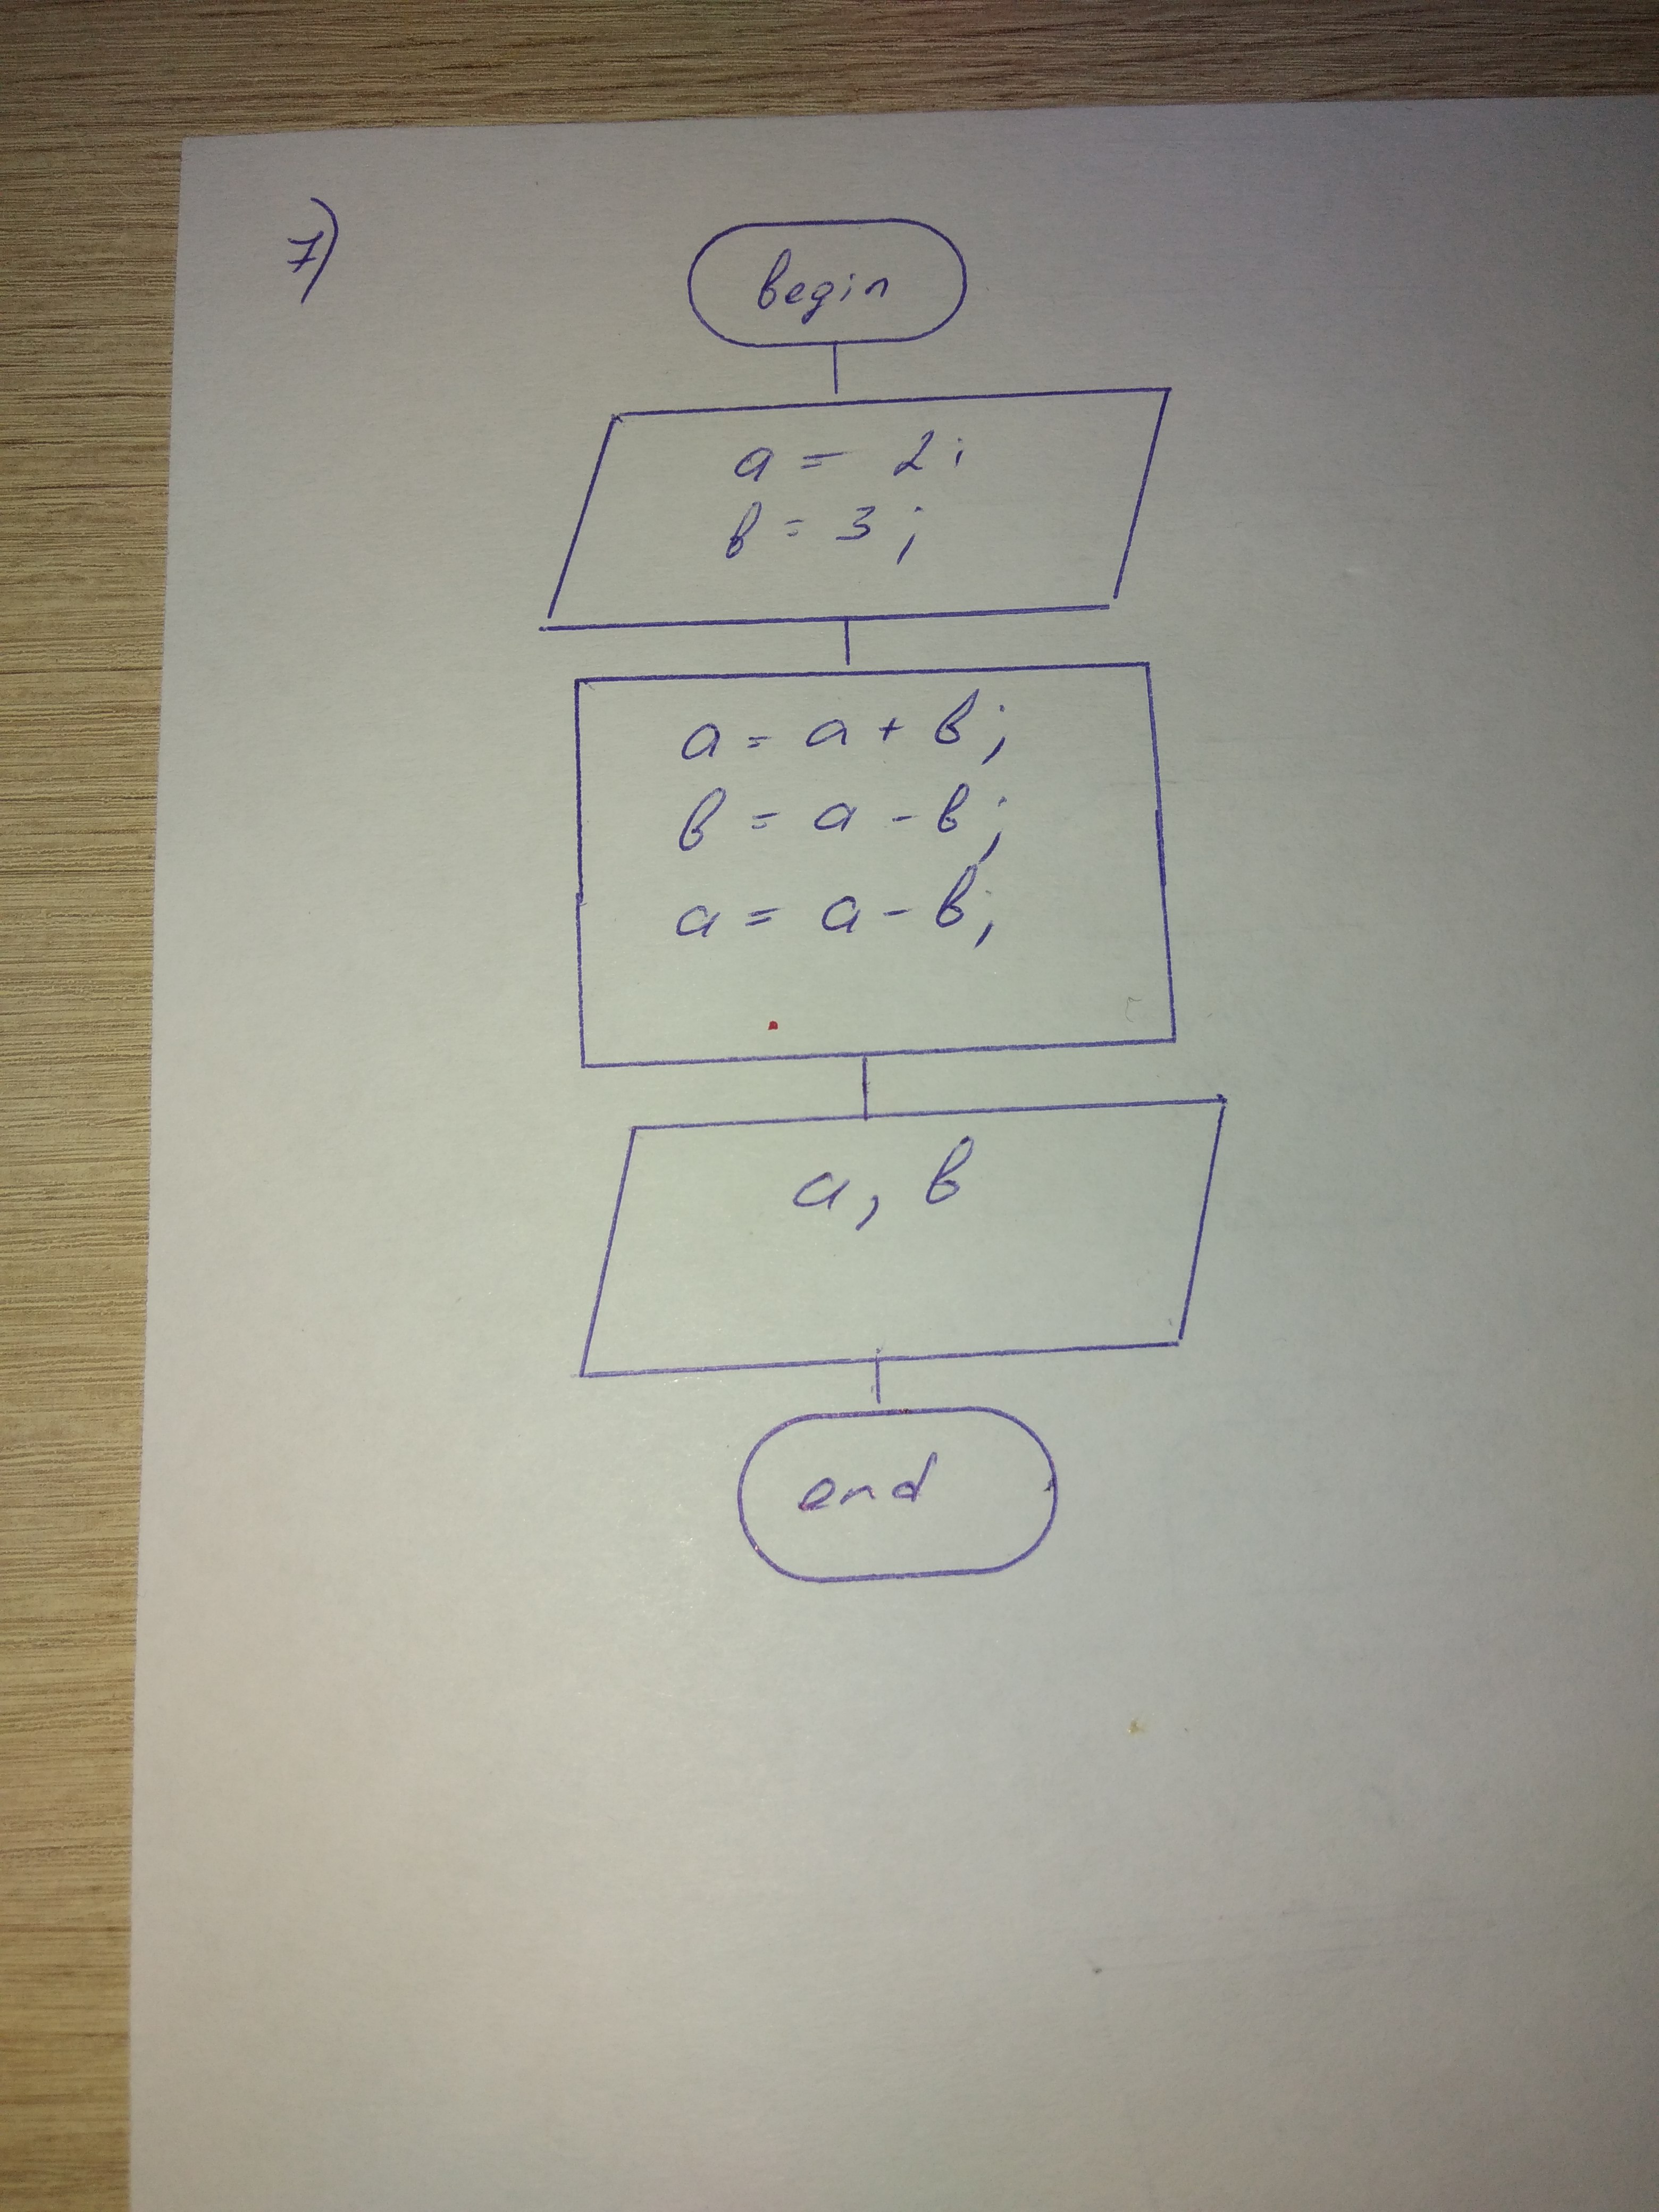 7)
begin
a = 2;
b = 3;
a = a + b;
b = a - b;
a = a - b;
a, b
end